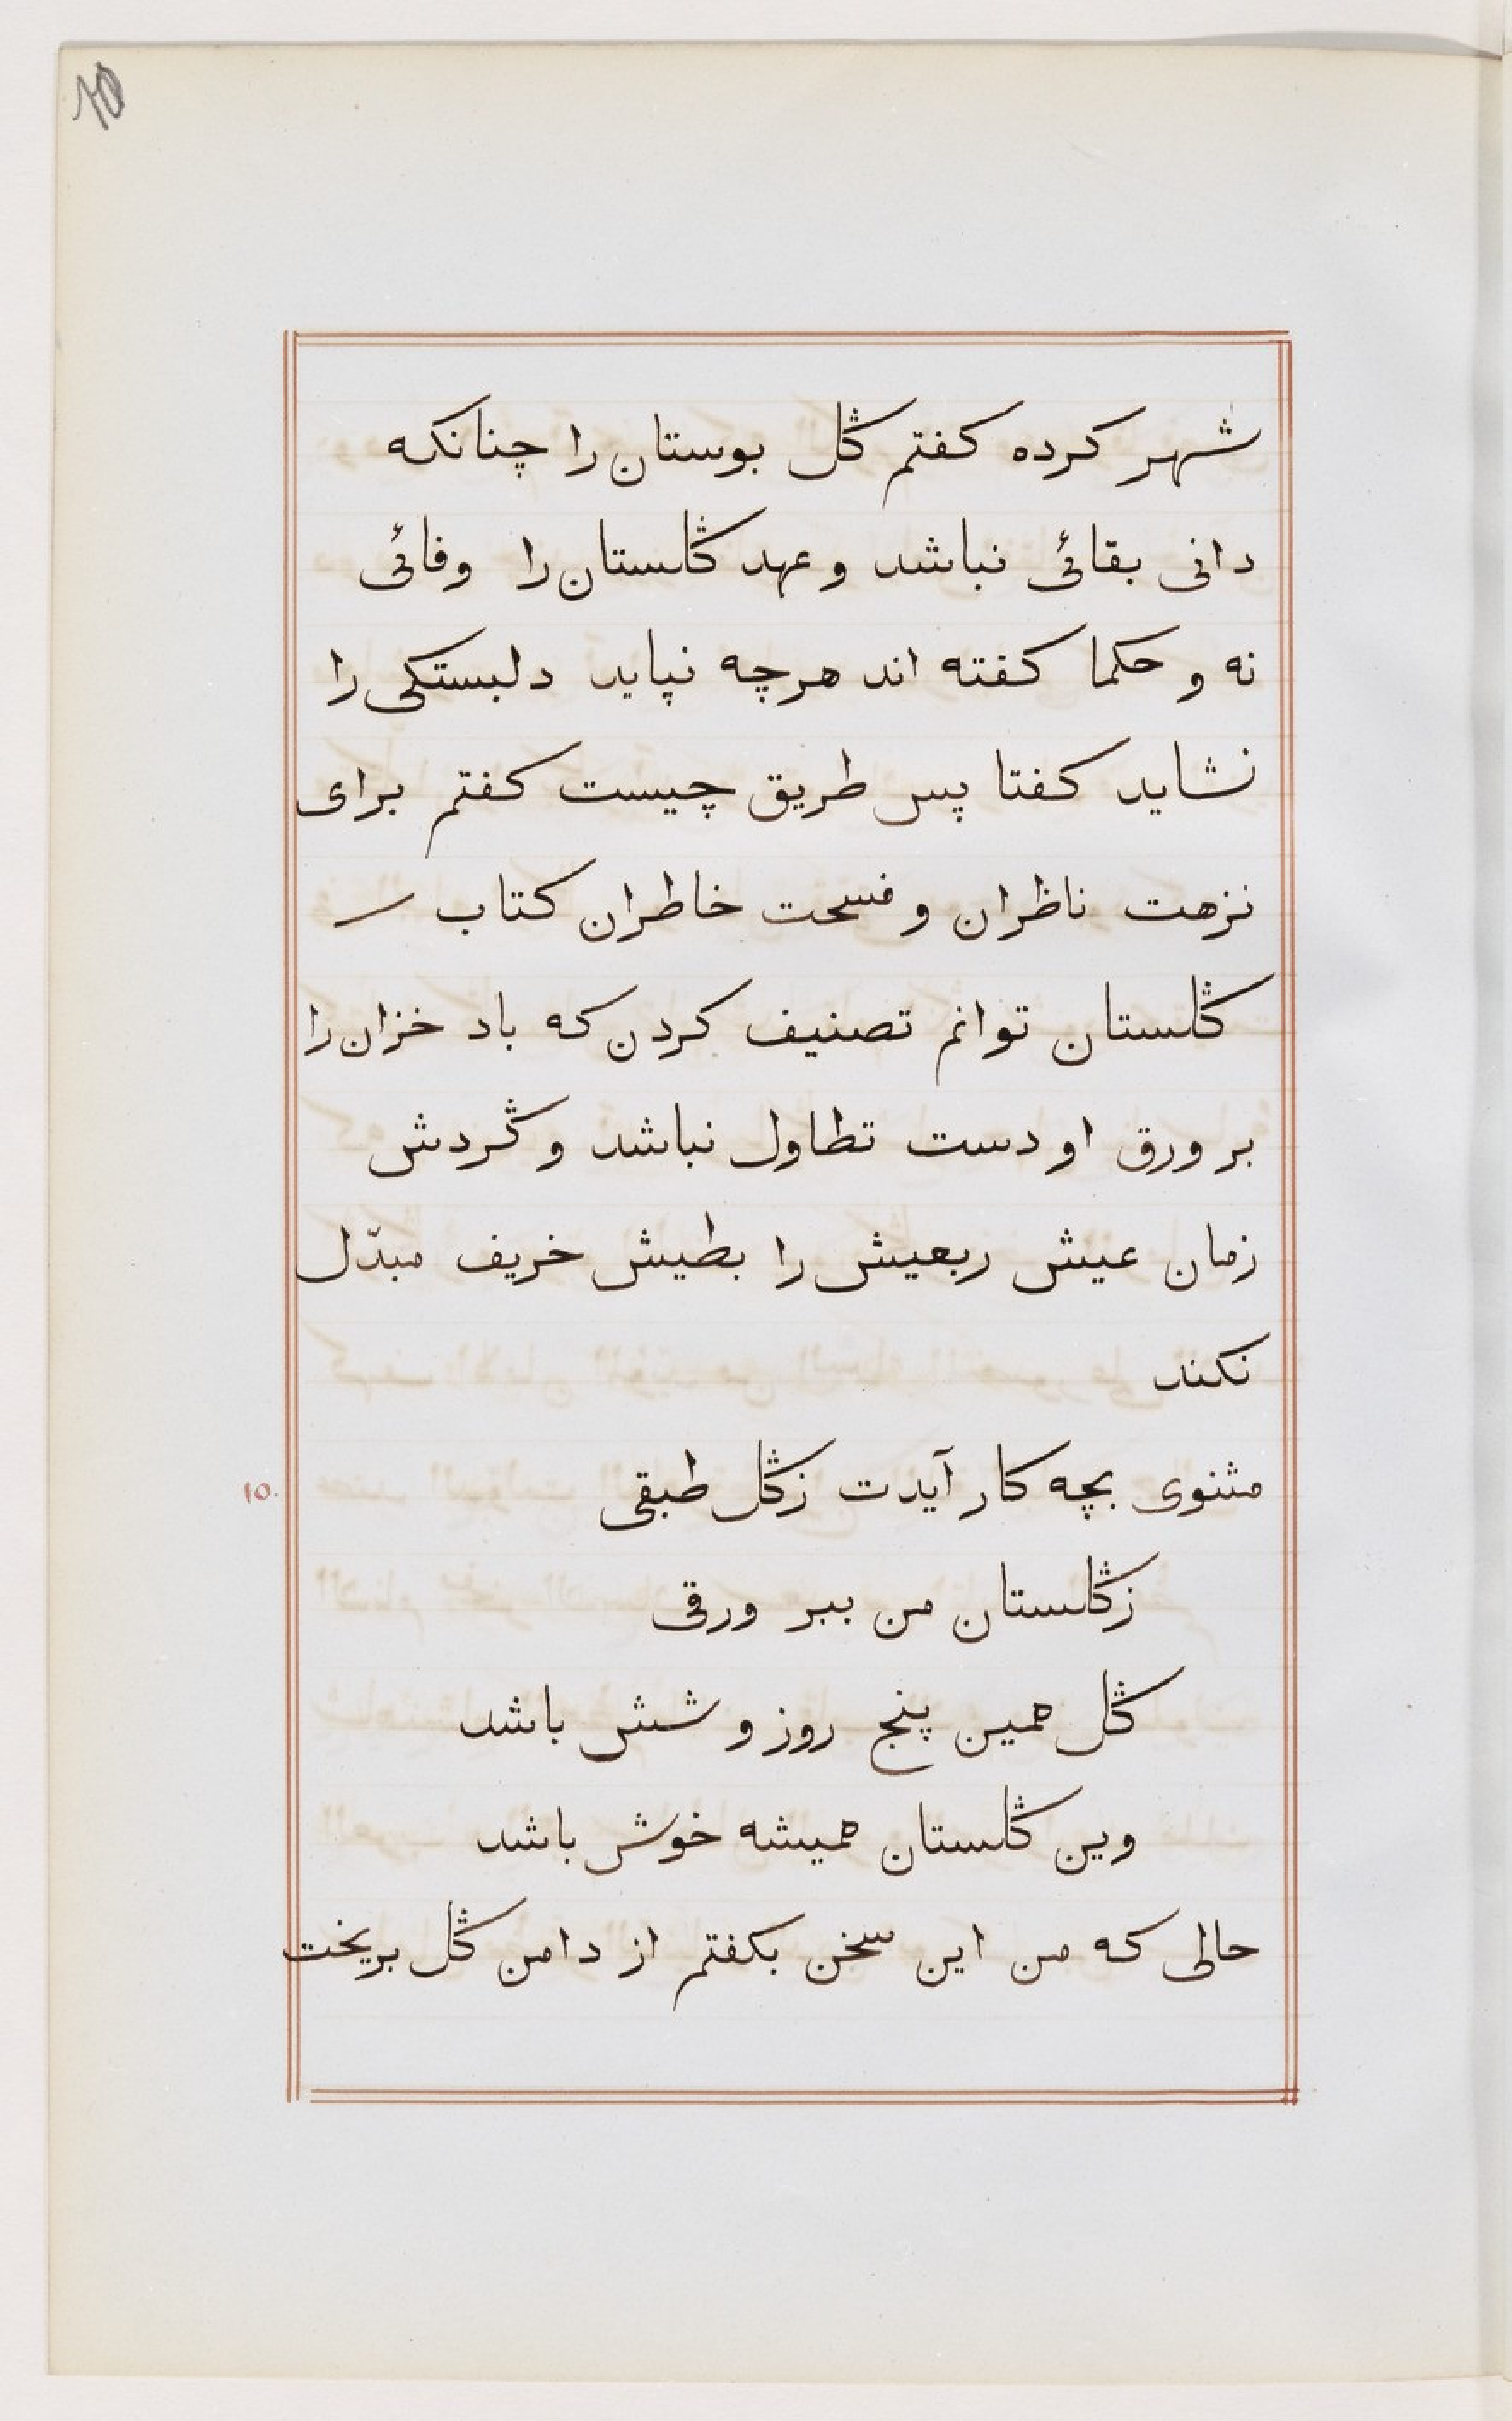 10
شهر کرده کفتم گل بوستان را چنانکه
دانی بقائی نباشد و عهد گلستان را وفائی
نه و حکما کفته اند هرچه نپاید دلبستکی را
نشاید کفتا پس طریق چیست کفتم برای
نزهت ناظران و فسحت خاطران کتاب
گلستان توانم تصنیف کردن که باد خزان را
بر ورق او دست تطاول نباشد و گردش
زمان عیش ربعیش را بطیش خریف مبدّل
نکند
مثنوی بچه کار آیدت زگل طبقی
10.
زگلستان من ببر ورقی
گل همین پنج روز و شش باشد
وین گلستان همیشه خوش باشد
حالی که من این سخن بکفتم از دامن گل بریخت